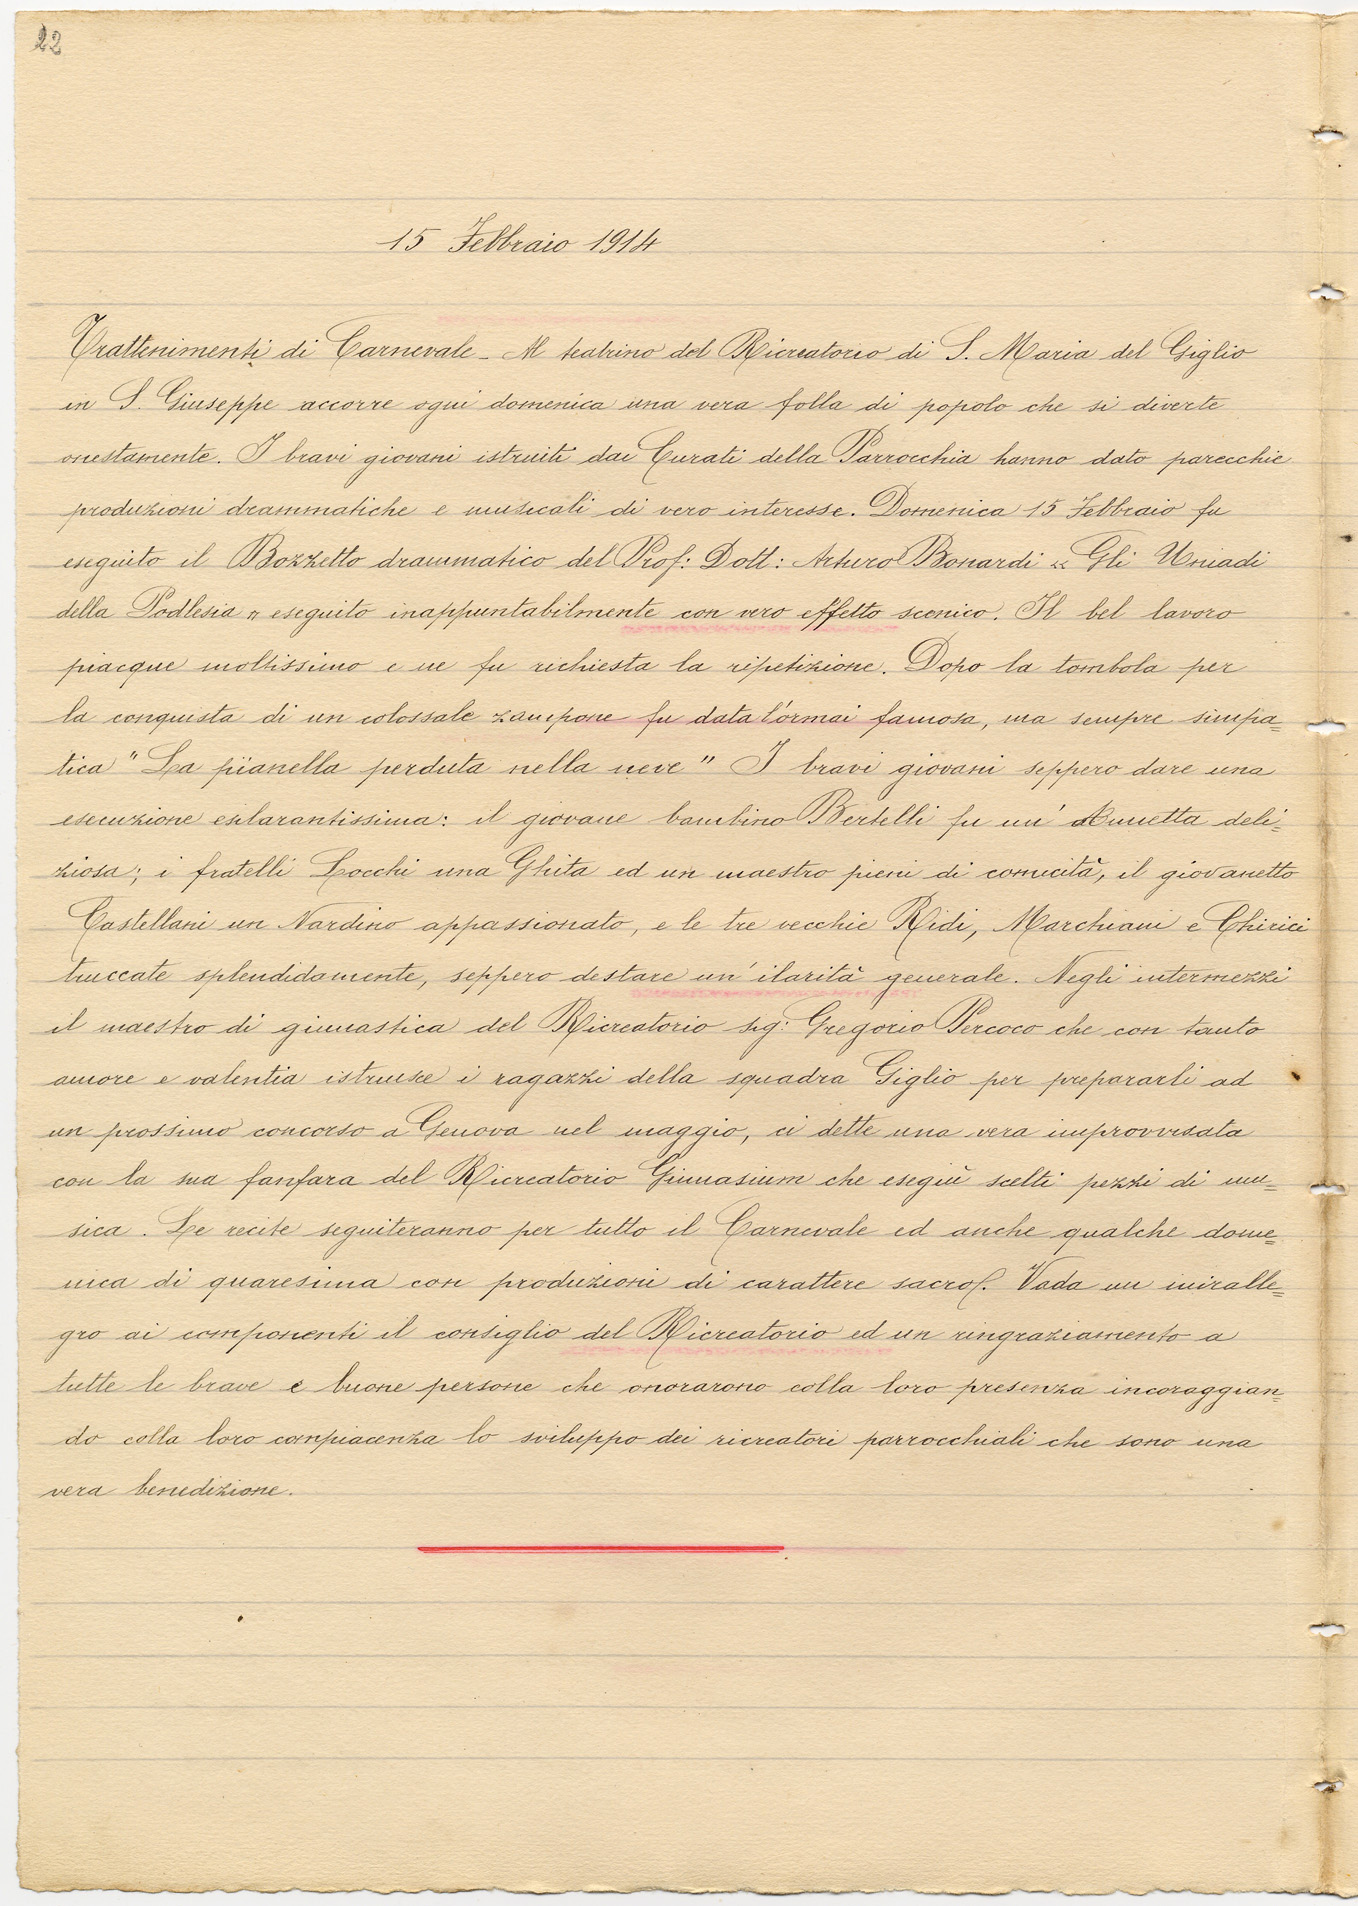 22
15 Febbraio 1914
Trattenimenti di Carnevale - Al teatrino del Ricreatorio di S. Maria del Giglio
in S. Giuseppe accorre ogni domenica una vera folla di popolo che si diverte
onestamente. I bravi giovani istruiti dai Curati della Parrocchia hanno dato parecchie
produzioni drammatiche e musicali di vero interesse. Domenica 15 Febbraio fu
eseguito il Bozzetto drammatico del Prof: Dott: Arturo Bonardi « Gli Uniadi
della Podlesia » eseguito inappuntabilmente con vero effetto scenico. Il bel lavoro
piacque moltissimo e ne fu richiesta la ripetizione. Dopo la tombola per
la conquista di un colossale zampone fu data l'ormai famosa, ma sempre simpa=
tica " La pianella perduta nella neve " I bravi giovani seppero dare una
esecuzione esilarantissima: il giovane bambino Bertelli fu un' Annetta deli=
ziosa; i fratelli Locchi una Ghita ed un maestro pieni di comicità, il giovanetto
Castellani un Nardino appassionato, e le tre vecchie Ridi, Marchiani e Chirici
truccate splendidamente, seppero destare un' ilarità generale. Negli intermezzi
il maestro di ginnastica del Ricreatorio sig: Gregorio Percoco che con tanto
amore e valentia istruisce i ragazzi della squadra Giglio per prepararli ad
un prossimo concorso a Genova nel maggio, ci dette una vera improvvisata
con la sua fanfara del Ricreatorio Gimnasium che esegiù scelti pezzi di mu=
sica. Le recite seguiteranno per tutto il Carnevale ed anche qualche dome=
nica di quaresima con produzioni di carattere sacro. Vada un miralle=
gro ai componenti il consiglio del Ricreatorio ed un ringraziamento a
tutte le brave e buone persone che onorarono colla loro presenza incoraggian=
do colla loro compiacenza lo sviluppo dei ricreatori parrocchiali che sono una
vera benedizione.